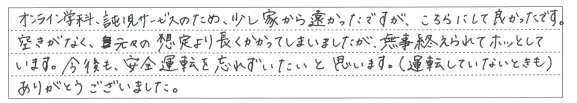 オンライン学科、託児サービスのため、少し家から遠かったですが、こちらにして良かったです。
空きがなく、元々の想定より長くかかってしまいましたが、無事終えられてホッとして
います。今後も、安全運転を忘れずいたいと思います。(運転していないときも)
ありがとうございました。